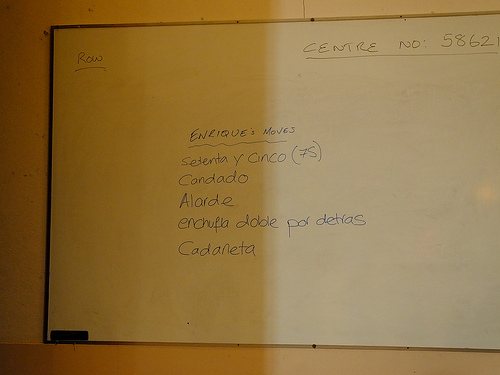 Row
CENTRE NO: 58621
ENRIQUE'S MOVES
Setenta y Cinco (75)
Candado
Alarde
enchufla doble por detras
Cadaneta